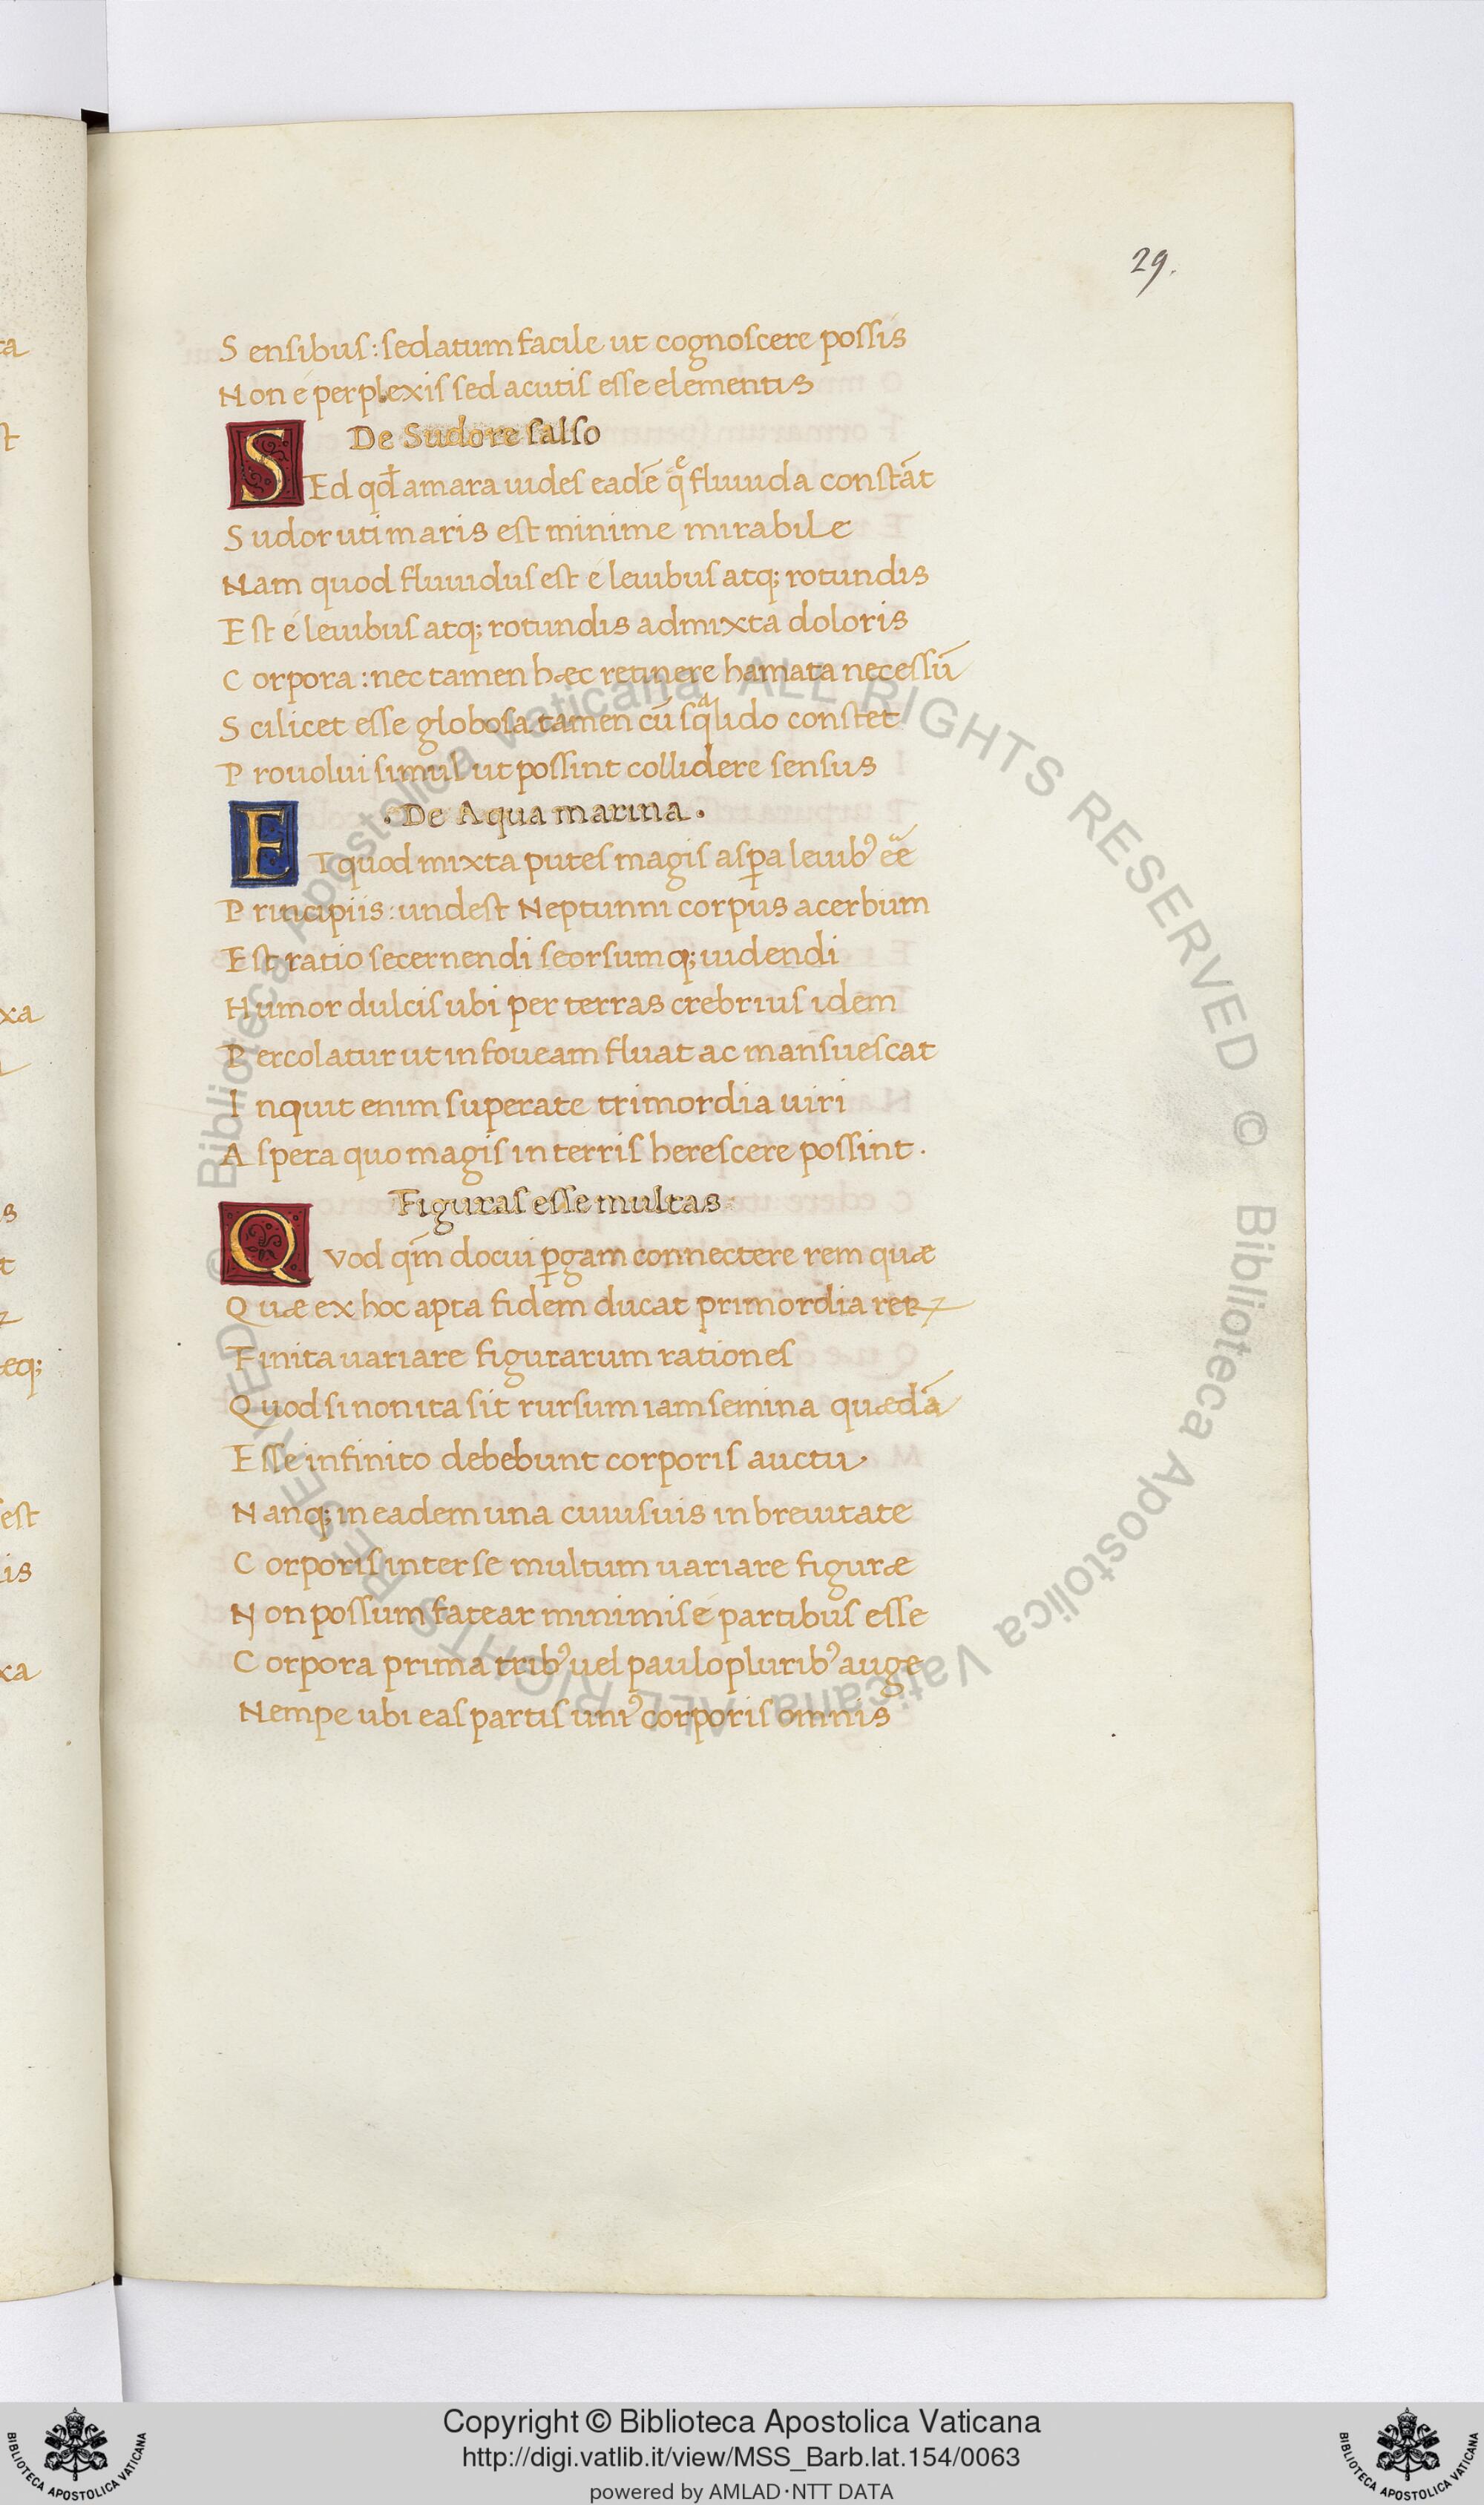 29.
Sensibus: sedatum facile ut cognoscere possis
Non é perplexis sed acutis esse elementis
De Sudore salso
SEd qđ amara uides eadē qͤ fluuida constāt
Sudor uti maris est minime mirabile
Nam quod fluuidus est é leuibus atq; rotundis
Est é leuibus atq; rotundis admixta doloris
Corpora: nec tamen hæc retinere hamata necessū
Scilicet esse globosa tamen cū sqͣlido constet
Prouolui simul ut possint collidere sensus
.De Aqua marina.
ETquod mixta putes magis asꝑa leuibꝰ eē̃
Principiis: undest Neptunni corpus acerbum
Est ratio secernendi seorsumq; uidendi
Humor dulcis ubi per terras crebrius idem
Percolatur ut in foueam fluat ac mansuescat
Inquit enim superate trimordia uiri
Aspera quo magis in terris herescere possint.
Figuras esse multas
QVod qm̄ docui ꝑgam connectere rem quæ
Quæ ex hoc apta fidem ducat primordia reꝝ
Finita uariare figurarum rationes
Quod si non ita sit rursum iam semina quædā
Esse infinito debebunt corporis auctu
Nanq; in eadem una cuiusuis in breuitate
Corporis inter se multum uariare figuræ
Non possum fatear minimis é partibus esse
Corpora prima tribꝰ uel paulo pluribꝰ auge
Nempe ubi eas partis uniꝰ corporis omnis
Biblioteca Apostolica Vaticana ALL RIGHTS RESERVED ©
Biblioteca Apostolica Vaticana ALL RIGHTS RESERVED ©
Copyright © Biblioteca Apostolica Vaticana
http://digi.vatlib.it/view/MSS_Barb.lat.154/0063
powered by AMLAD·NTT DATA
BIBLIOTECA APOSTOLICA VATICANA
BIBLIOTECA APOSTOLICA VATICANA